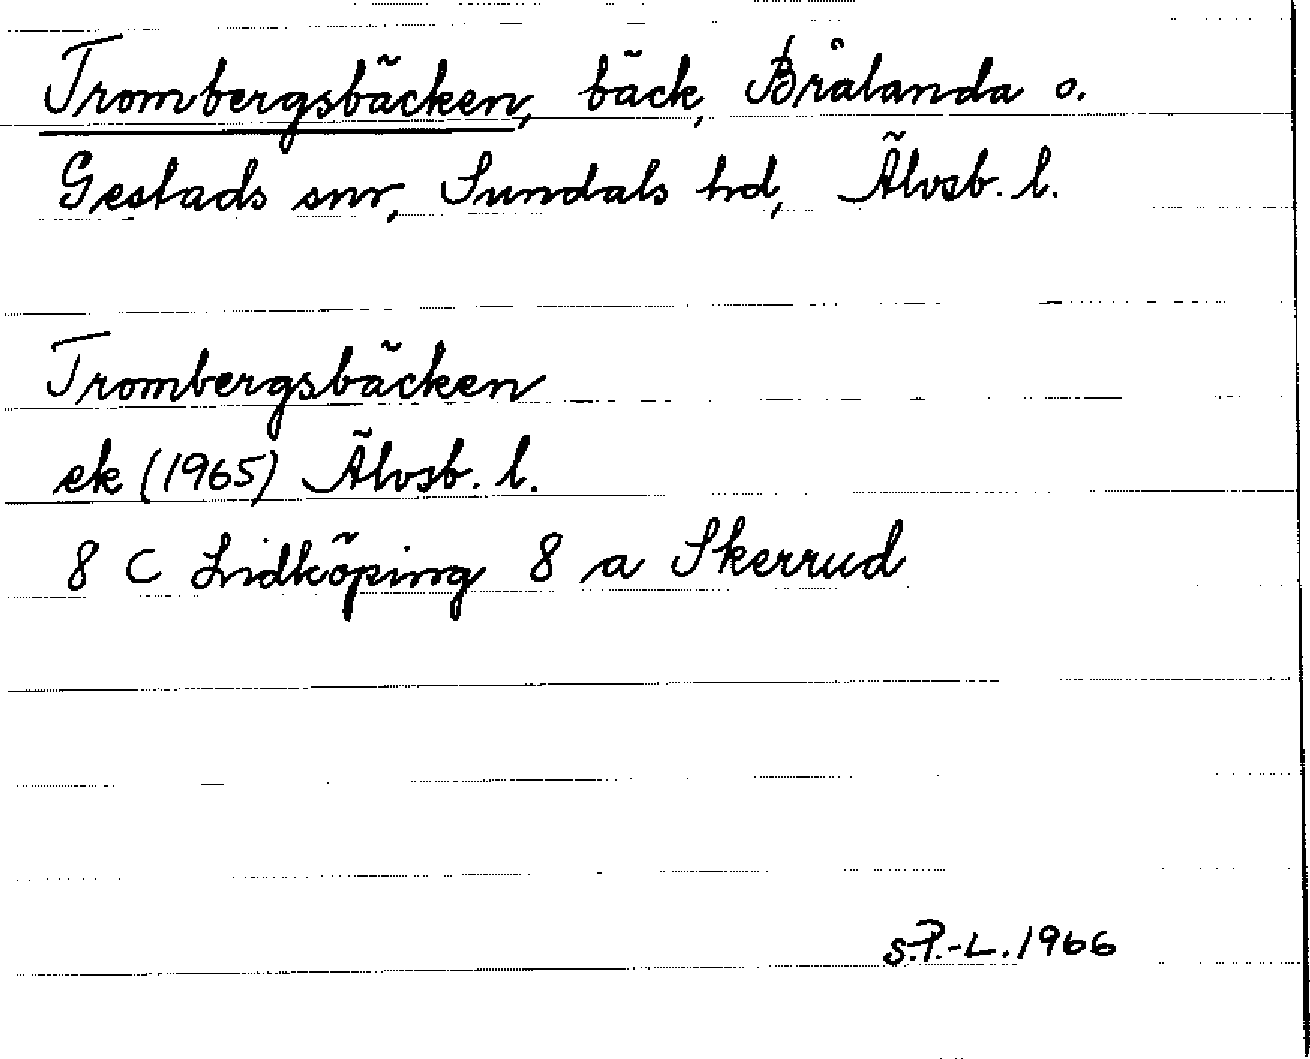 Trombergsbäcken, bäck, Brålanda o.
Gestads snr, Sundals hd, Älvsb. l.
Trombergsbäcken
ek (1965) Älvsb. l.
8 C Lidköping 8 a Skerrud
S.P.-L. 1966